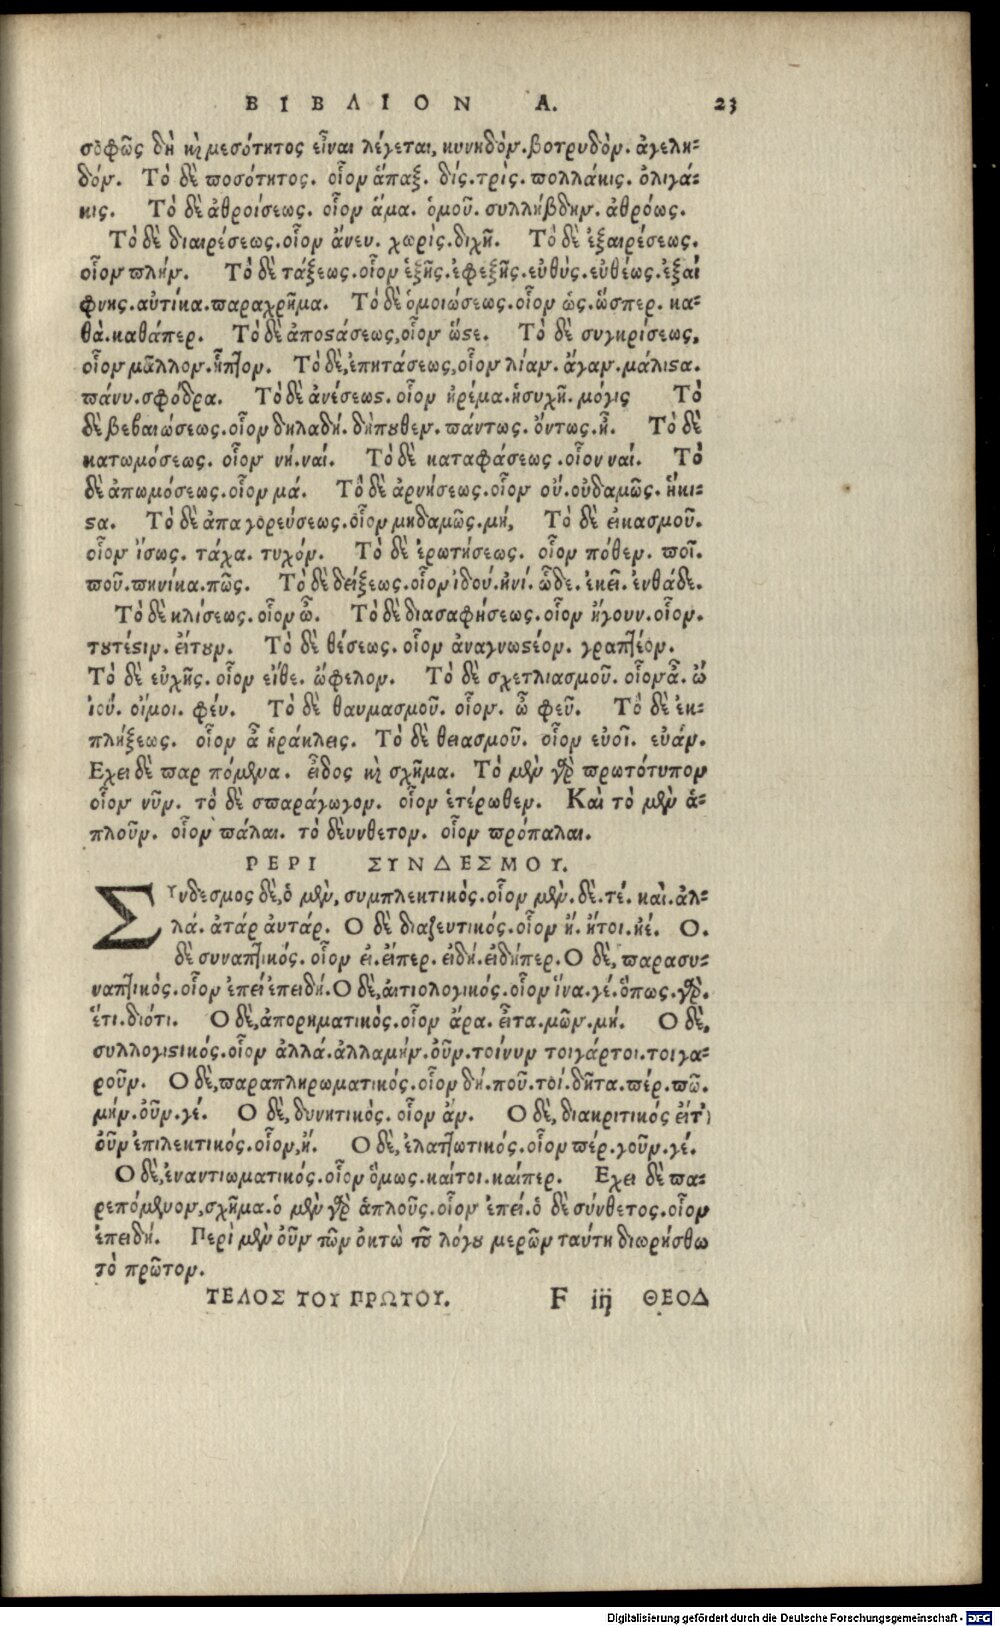 ΒΙΒΛΙΟΝ Α. 23
σοφῶς δὴ καὶ μεσότητος εἶναι λέγεται, κυνηδόν. βοτρυδόν. ἀγελη-
δόν. Τὸ δὲ ποσότητος. οἷον ἅπαξ. δίς. τρὶς. πολλάκις. ὀλιγά-
κις. Τὸ δὲ ἀθροίσεως. οἷον ἅμα. ὁμοῦ. συλλήβδην. ἀθρόως.
Τὸ δὲ διαιρέσεως. οἷον ἄνευ. χωρὶς. διχῆ. Τὸ δὲ ἐξαιρέσεως.
οἷον πλήν. Τὸ δὲ τάξεως. οἷον ἑξῆς. ἐφεξῆς. εὐθὺς. εὐθέως. ἐξαί
φνης. αὐτίκα. παραχρῆμα. Τὸ δὲ ὁμοιώσεως. οἷον ὡς. ὥσπερ. κα-
θὰ. καθάπερ. Τὸ δὲ ἀποστάσεως, οἷον ὥστε. Τὸ δὲ συγκρίσεως,
οἷον μᾶλλον. ἧττον. Τὸ δὲ, ἐπιτάσεως, οἷον λίαν. ἄγαν. μάλιστα.
πάνυ. σφόδρα. Τὸ δὲ ἀνέσεως. οἷον ἠρέμα. ἡσυχῆ. μόγις Τὸ
δὲ βεβαιώσεως. οἷον δηλαδή. δήπουθεν. πάντως. ὄντως. ἦ. Τὸ δὲ
κατωμόσεως. οἷον νή. ναί. Τὸ δὲ καταφάσεως. οἷον ναί. Τὸ
δὲ ἀπωμόσεως. οἷον μά. Τὸ δὲ ἀρνήσεως. οἷον οὐ. οὐδαμῶς. ἥκι-
στα. Τὸ δὲ ἀπαγορεύσεως. οἷον μηδαμῶς. μή, Τὸ δὲ εἰκασμοῦ.
οἷον ἴσως. τάχα. τυχόν. Τὸ δὲ ἐρωτήσεως. οἷον πόθεν. ποῖ.
ποῦ. πηνίκα. πῶς. Τὸ δὲ δείξεως. οἷον ἰδού. ἠνί. ὧδε. ἐκεῖ. ἐνθάδε.
Τὸ δὲ κλίσεως. οἷον ὦ. Τὸ δὲ διασαφήσεως. οἷον ἤγουν. οἷον.
τουτέστιν. εἴτουν. Τὸ δὲ θέσεως. οἷον ἀναγνωστέον. γραπτέον.
Τὸ δὲ εὐχῆς. οἷον εἴθε. ὤφελον. Τὸ δὲ σχετλιασμοῦ. οἷον ἆ. ὤ
ἰού. οἴμοι. φέυ. Τὸ δὲ θαυμασμοῦ. οἷον. ὦ φεῦ. Τὸ δὲ ἐκ-
πλήξεως. οἷον ἆ ἡράκλεις. Τὸ δὲ θειασμοῦ. οἷον εὐοῖ. εὐάν.
Εχει δὲ παρ πόμενα. εἶδος καὶ σχῆμα. Τὸ μὲν γὰρ πρωτότυπον
οἷον νῦν. τὸ δὲ σπαράγωγον. οἷον ἑτέρωθεν. Καὶ τὸ μὲν ἁ-
πλοῦν. οἷον πάλαι. τὸ δὲυνθετον. οἷον πρόπαλαι.
ΡΕΡΙ ΣΥΝΔΕΣΜΟΥ.
Σύνδεσμος δὲ, ὁ μὲν, συμπλεκτικὸς. οἷον μὲν. δὲ. τέ. καὶ. ἀλ-
λά. ἀτάρ ἀυτάρ. Ο δὲ διαζευτικός. οἷον ἤ. ἤτοι. ἠέ. Ο.
δὲ συναπτικός. οἷον εἰ. εἴπερ. εἰδή. εἰδήπερ. Ο δὲ, παρασυ-
ναπτικὸς. οἷον ἐπεί ἐπειδή. Ο δὲ, ἀιτιολογικός. οἷον ἵνα. γέ. ὅπως. γὰρ.
ἕτι. διότι. Ο δὲ, ἀπορηματικὸς. οἷον ἄρα. εἶτα. μῶν. μή. Ο δὲ,
συλλογιστικός. οἷον ἀλλά. ἀλλαμήν. οὖν. τοίνυν τοιγάρτοι. τοιγα-
ροῦν. Ο δὲ, παραπληρωματικός. οἷον δή. ποῦ. τοί. δῆτα. πέρ. πῶ.
μήν. οὖν. γέ. Ο δὲ, δυνητικὸς. οἷον ἄν. Ο δὲ, διακριτικός εἴτ᾽
οὖν ἐπιλεκτικός. οἷον, ἤ. Ο δὲ, ἐλαττωτικὸς. οἷον πέρ. γοῦν. γέ.
Ο δὲ, ἐναντιωματικός. οἷον ὅμως. καίτοι. καίπερ. Εχει δὲ πα-
ρεπόμενον, σχῆμα. ὁ μὲν γὰρ ἁπλοῦς. οἷον ἐπεί. ὁ δὲ σύνθετος. οἷον
ἐπειδή. Περὶ μὲν οὖν τῶν ὀκτὼ τοῦ λόγου μερῶν ταύτη διωρήσθω
τὸ πρῶτον.
ΤΕΛΟΣ ΤΟΥ ΠΡΩΤΟΥ. F iij ΘΕΟΔ
Digitalisierung gefördert durch die Deutsche Forschungsgemeinschaft - DFG